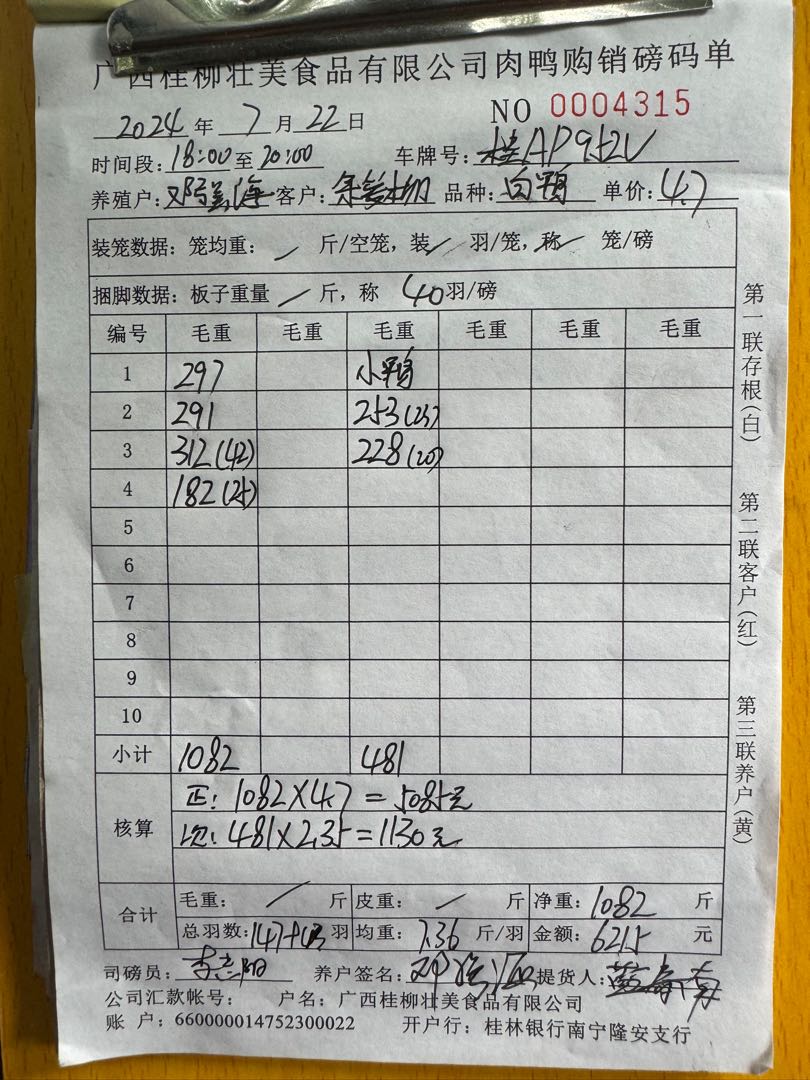 广西桂柳壮美食品有限公司肉鸭购销磅码单
NO 0004315
2024 年 7 月 22 日
时间段: 18:00 至 20:00 车牌号: 桂AP952V
养殖户: 客户: 品种: 白鸭 单价: 4.7
装笼数据: 笼均重: / 斤/空笼, 装 / 羽/笼, 称 / 笼/磅
捆脚数据: 板子重量 / 斤, 称 40 羽/磅
编号 毛重 毛重 毛重 毛重 毛重 毛重
1 297 小鸭
2 291 253(25)
3 312(42) 228(20)
4 182(25)
5
6
7
8
9
10
小计 1082 481
核算
正: 1082×4.7=5085元
次: 481×2.35=1130元
合计
毛重: / 斤 皮重: / 斤 净重: 1082 斤
总羽数: 147+ 羽 均重: 7.36 斤/羽 金额: 6215 元
司磅员: 李志阳 养户签名: 提货人:
公司汇款帐号: 户名: 广西桂柳壮美食品有限公司
账 户: 660000014752300022 开户行: 桂林银行南宁隆安支行
第一联存根(白)
第二联客户(红)
第三联养户(黄)